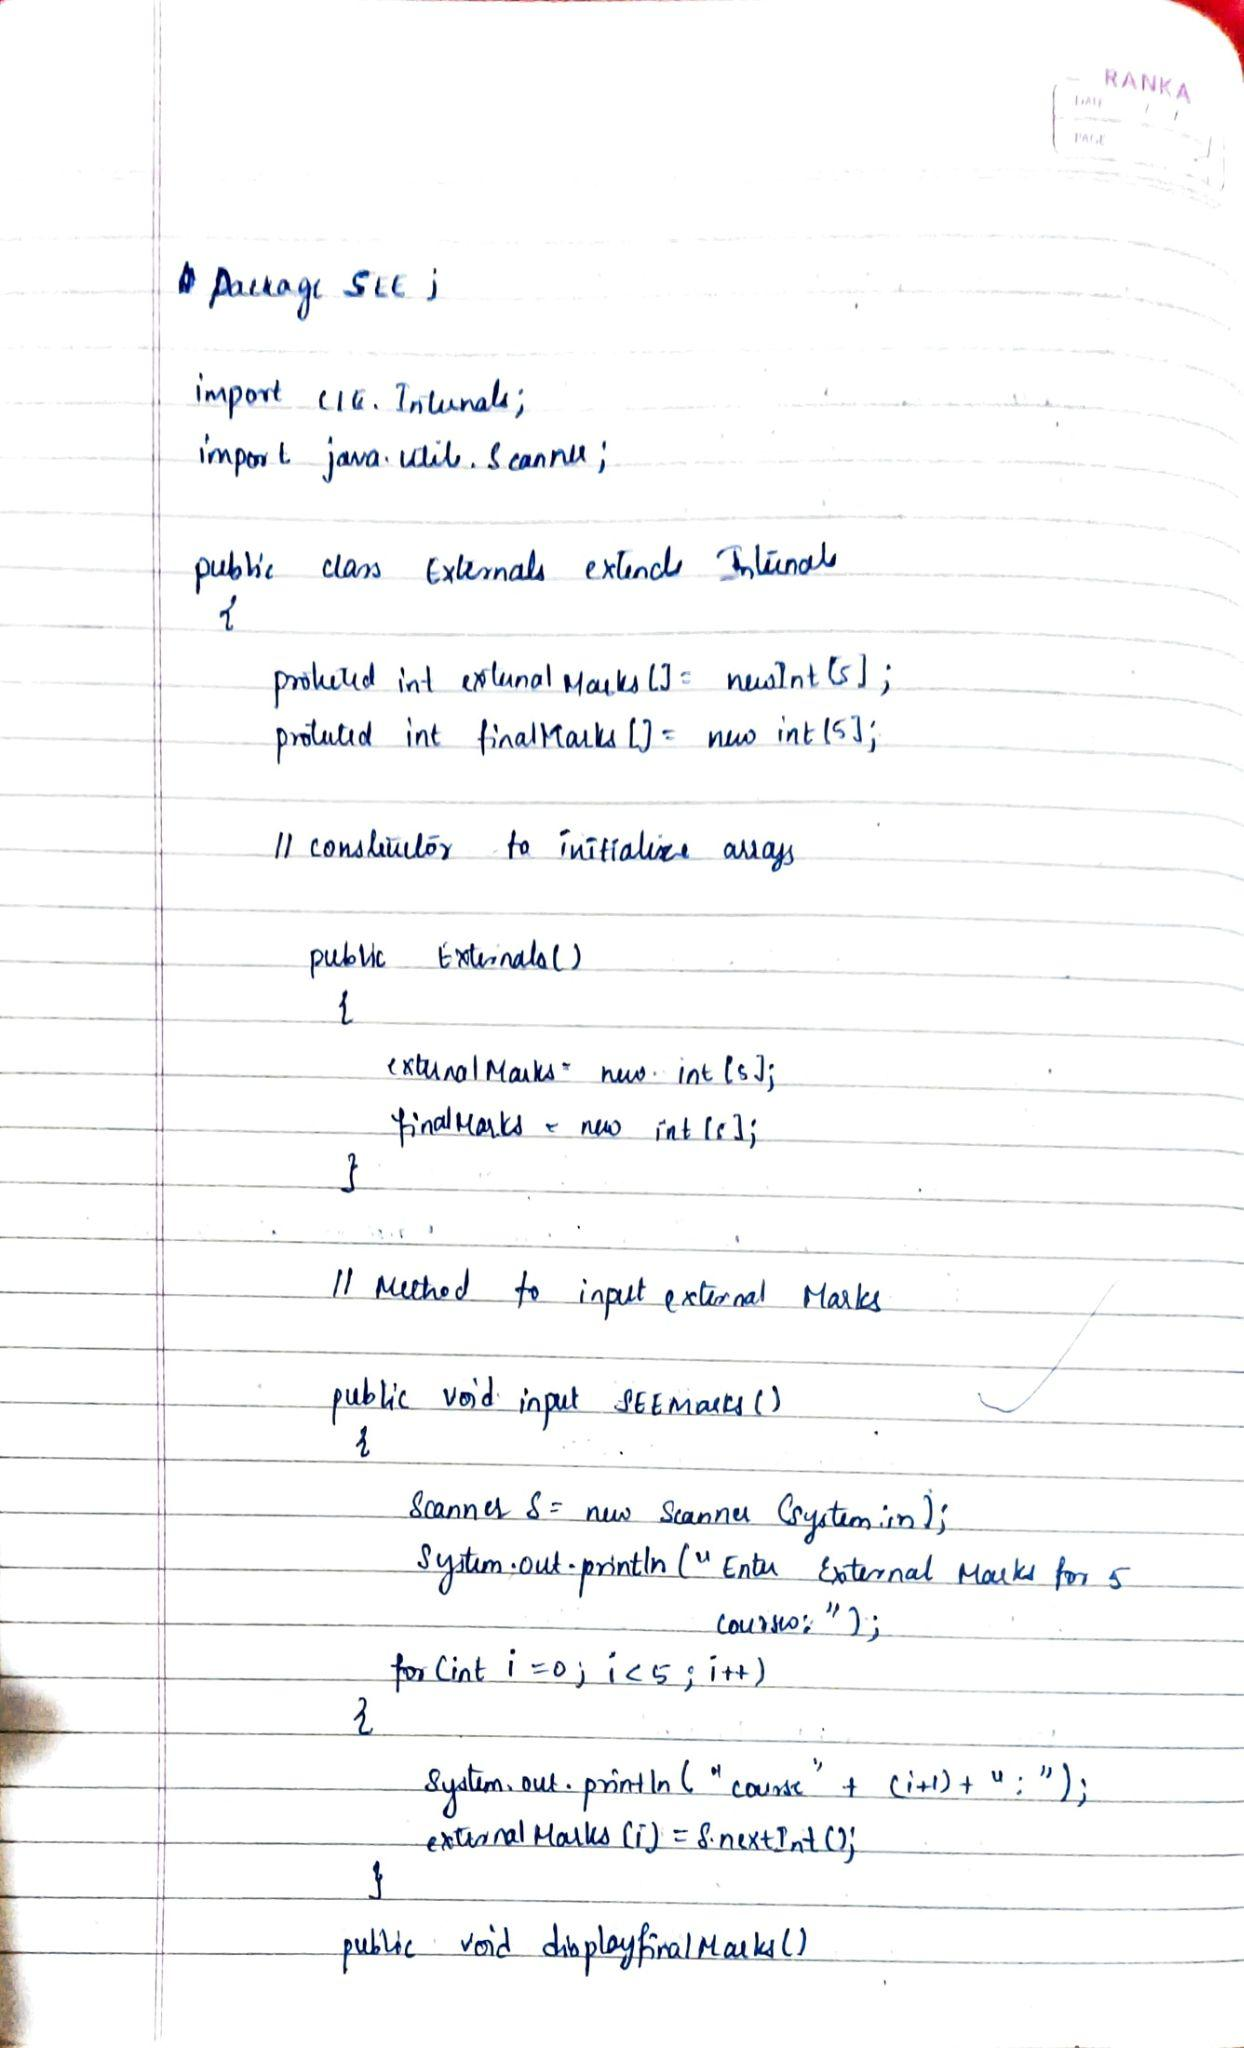 RANKA
DATE / /
PAGE
Package SEE ;
import CIE. Internals;
import java. util. Scanner ;
public class Externals extends Internals
{
protected int external Marks [] = new int [5] ;
protected int finalMarks [] = new int [5];
// constructor to initialize arrays
public Externals ()
{
external Marks = new int [5];
final Marks = new int [5];
}
// Method to input external Marks
public void input SEEMarks ()
{
Scanner S = new Scanner (System.in);
System.out.println (" Enter External Marks for 5
courses: ");
for (int i =0; i<5 ; i++)
{
System.out. println ( " course " + (i+1) + " : ");
external Marks [i] = S.nextInt ();
}
public void displayfinal Marks ()